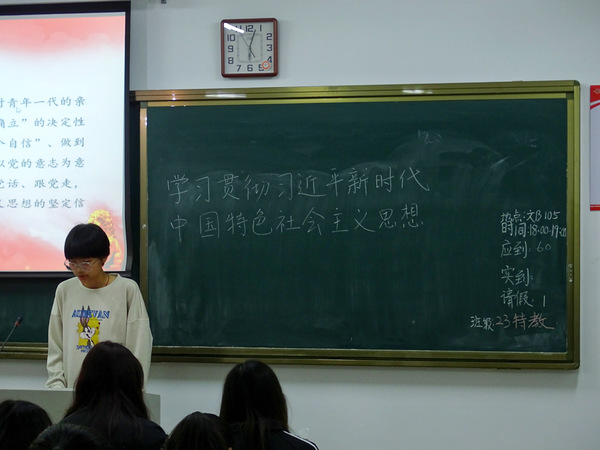 时青年一代的亲
角立”的决定性
个自信”、做到
以党的意志为意
党话、跟党走,
义思想的坚定信
12
1
2
3
4
5
6
7
8
9
10
11
学习贯彻习近平新时代
中国特色社会主义思想
地点:文B105
时间:18:00-19:00
应到:60
实到:
请假:1
班级:23特教